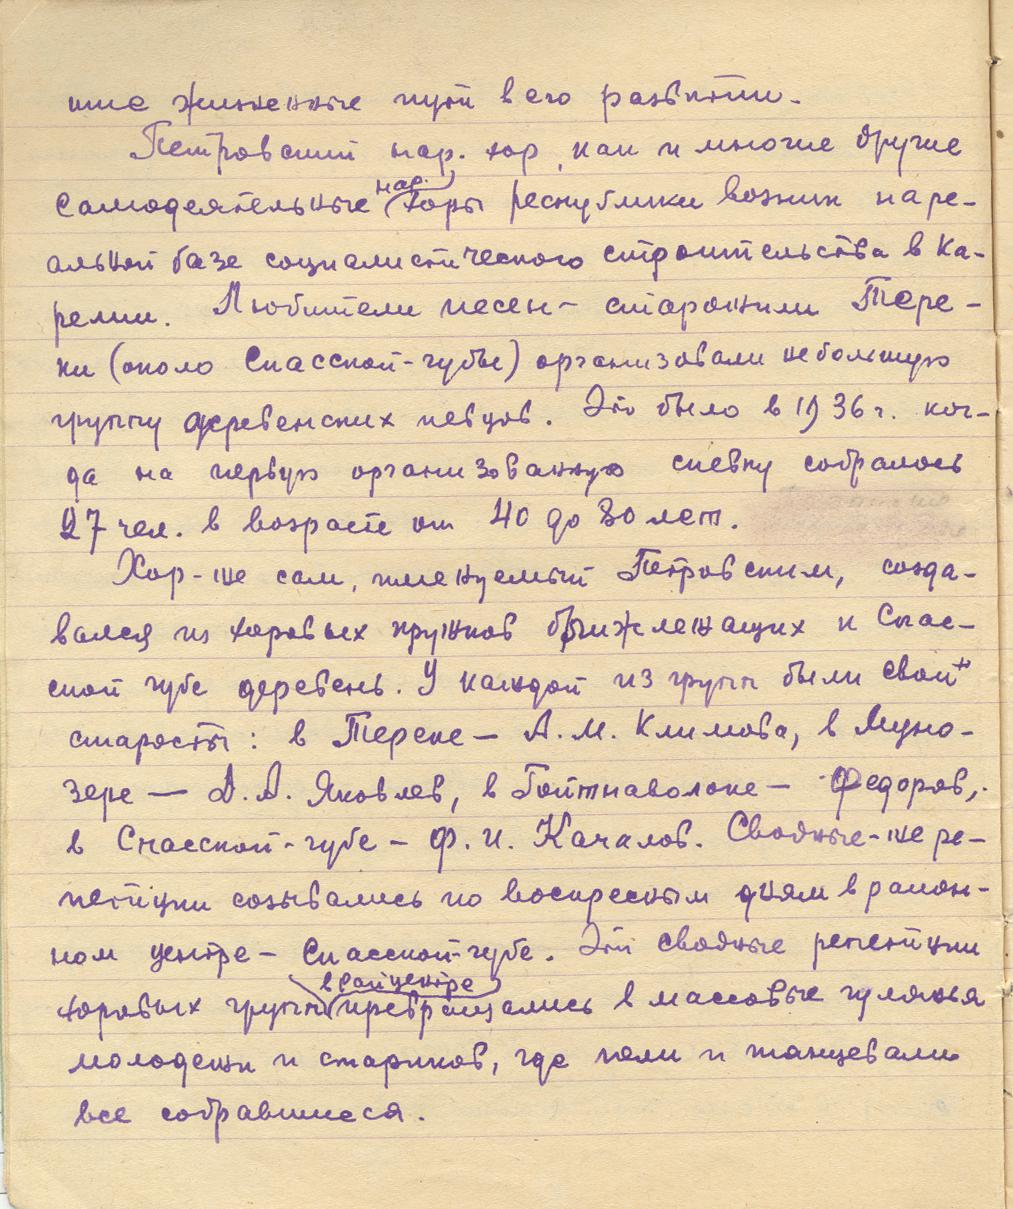 шие жизненные пути в его развитии.
Петровский нар. хор, как и многие другие
самодеятельные нар. хоры республики возник на ре-
альной базе социалистического строительства в Ка-
релии. Любители песен - старожили Тере-
ки (около Спасской-губы) организовали небольшую
группу деревенских певцов. Это было в 1936 г. ког-
да на первую организованную спевку собралось
27 чел. в возрасте от 40 до 80 лет.
Хор-же сам, именуемый Петровским, созда-
вался из хоровых кружков близлежащих к Спас-
ской губе деревень. У каждой из групп были свои
старосты: в Тереке - А.М. Климова, в Муно-
зере - А.А. Яковлев, в Гойтнаволоке - Федоров,
в Спасской-губе - Ф.И. Качалов. Сводные-же ре-
петиции созывались по воскресным дням в район-
ном центре - Спасской-губе. Эти сводные репетиции
хоровых групп в райцентре превращались в массовые гулянья
молодежи и стариков, где пели и танцевали
все собравшиеся.